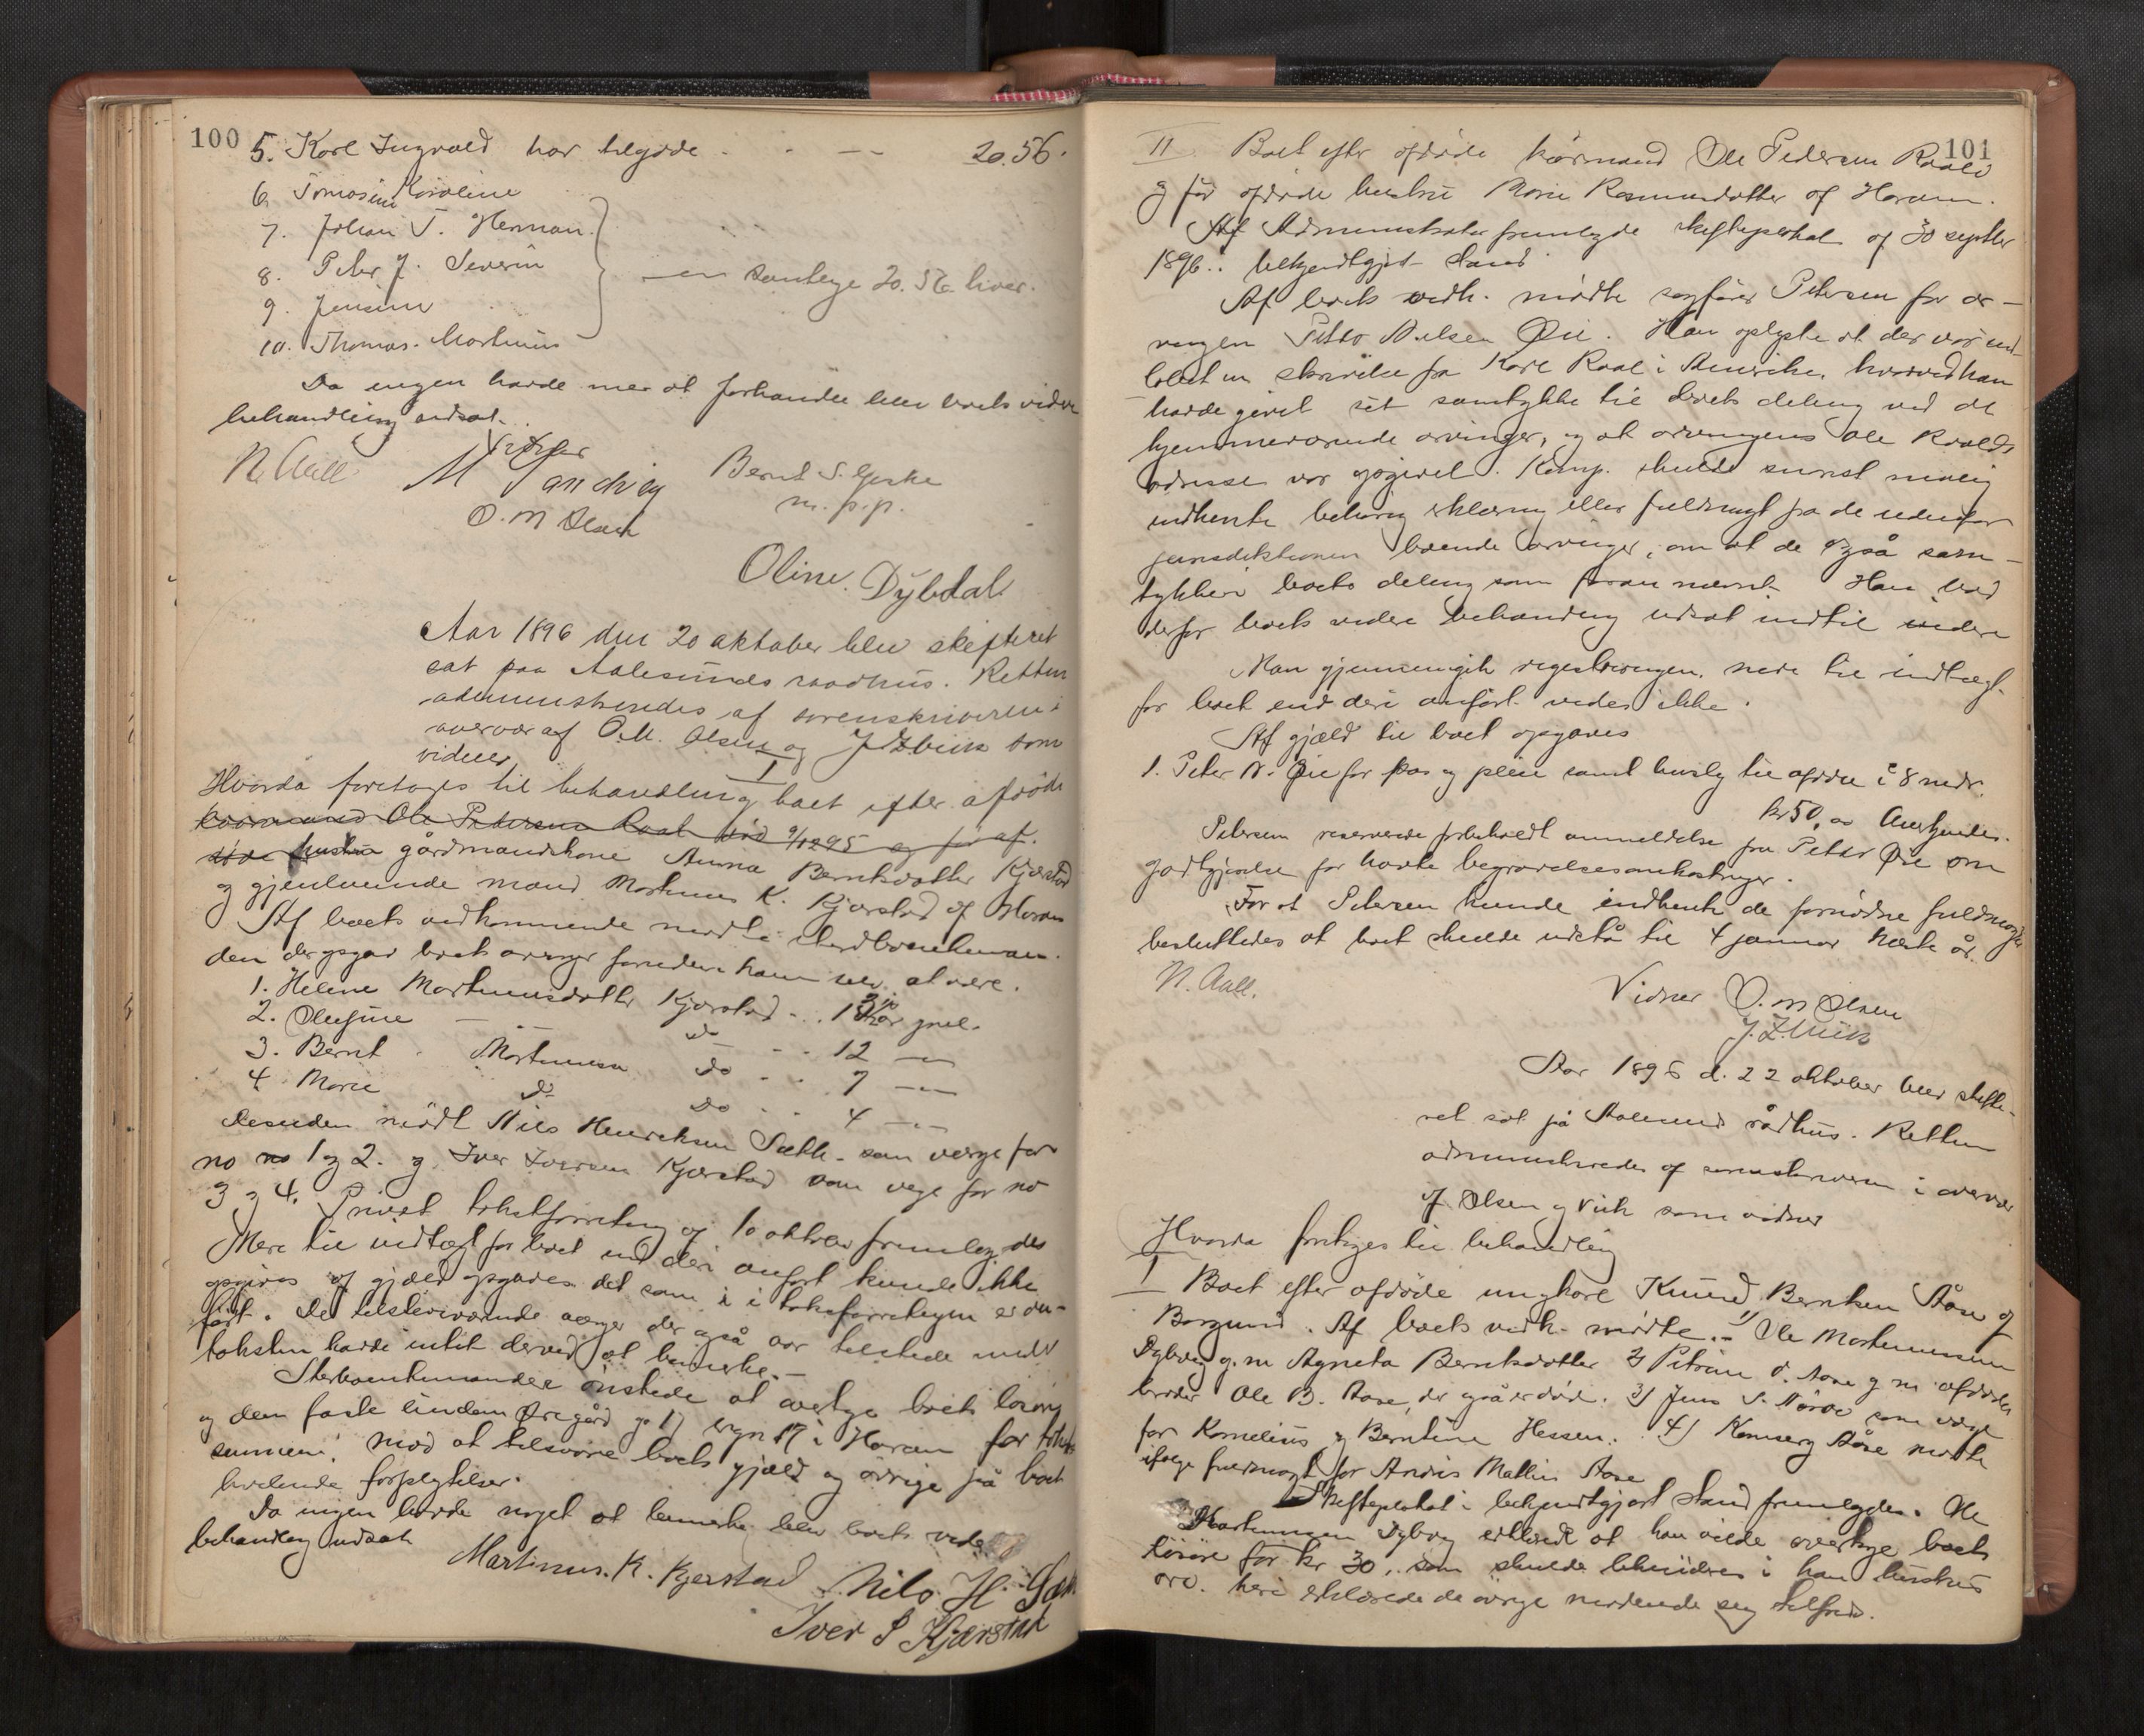 100
5. Karl Ingvald har tilgode - - - 20.56.
6. Tomasine Karoline
7. Johan T. Herman
8. Peter J. Severin
9. Jensine
10. Thomas Martinus
samtlige 20.56 hver.
Da ingen havde mer at forhandle blev boets videre
behandling udsat.
N. Aall
M Sandvig
Bernt S. Gjerke
m. p. p.
O. M Olsen
Oline. Dybdal
Aar 1896 den 20 oktober blev skifteret
sat paa Aalesunds raadhus. Retten
administreredes af sorenskriveren i
overvær af O.M. Olsen og J Z Vick som
vidner
I
Hvorda foretoges til behandling boet efter afdøde
kaarmand Ole Pedersen Raal død 9/12 95 og før af-
døde hustru gårdmandskone Anna Berntsdatter Kjærstad
og gjenlevende mand Martinus K. Kjærstad af Haram
Af boets vedkommende mødte sterboenkeman-
den der opgav boets arvinger foruden ham selv at være.
1. Helene Martinusdatter Kjærstad - . . år gml.
2. Olufine — " — Do - . . 12 —"—
3. Bernt Martinusen Do . . 7 —"—
4. Marie Do Do . . 4 —"—
desuden mødte Nils Henriksen Sætk. som værge for
no no 1 og 2. og Iver Iversen Kjærstad som verge for no
3 og 4. Privat takstforretning af 10 oktober fremlagdes
Mere til indtægt for boet end deri anført kunde ikke
opgives af gjæld opgaves det som i i takstforretningen er an-
ført. De tilstedeværende verger der også var tilstede ved
taksten havde intet derved at bemærke. -
Sterboenkemanden ønskede at overtage boets løsøre
og den faste eiendom Øregård g. 17 i Haram for takst
summen mod at tilsvare boets gjæld og øvrige på boet
hvilende forpligtelser.
Da ingen havde noget at bemærke blev boets videre
behandling udsat
Martinus. K. Kjerstad Nils H. Sæt
Iver I Kjærstad
101
II Boet efter afdøde kårmand Ole Pedersen Raald
og før afdøde hustru Marie Rasmusdatter af Haram.
Af Administrator fremlagde skifteplakat af 30 septbr
1896. i bekjendtgjort stand.
Af boets vedk. mødte sagfører Petersen for ar-
vingen Petter Nilsen Øie. Han oplyste at der var ind-
løbet en skrivelse fra Karl Raal i Amerika, hvorved han
havde givet sit samtykke til boets deling ved de
hjemmeværende arvinger, og at arvingens Ole Raalds
adresse var opgivet. Komp. skulde snarest mulig
indhente behørig erklæring eller fuldmagt fra de udenfor
jurisdiktionen boende arvinger, om at de også sam-
tykker i boets deling som foran nævnt. Han bad
derfor boets videre behandling udsat indtil videre
Man gjennemgik registreringen. mere til indtægt
for boet end deri anført vides ikke.
Af gjæld til boet opgaves
1. Peter N. Øie for pas og pleie samt husly til afdøde i 8 mdr.
kr 50,00 Anerkjendes.
Petersen reserverede forbeholdt anmeldelse fra Petter Øie om
godtgjørelse for havte begravelsesomkostninger.
For at Petersen kunde indhente de fornødne fuldmagter
besluttedes at boet skulde udstå til 4 januar næste år.
N. Aall.
Vidner O. M Olsen
J. Z. Vick
Aar 1896 d. 22 oktober blev skifte-
ret sat på Aalesund rådhus. Retten
administreredes af sorenskriveren i overvær
af Olsen og Vick som vidner
Hvorda foretoges til behandling
I Boet efter afdøde ungkarl Knud Berntsen Åse af
Borgund. Af boets vedk. mødte. - 1) Ole Martinussen
Dybvig g. m. Agneta Berntsdatter 2) Petrine O. Aase g m afdødes
broder Ole B. Aase, der også er død. 3) Jens S. Nørve som værge
for Kornelius og Berntine Hessen. 4) Konserg Åse mødte
ifølge fuldmagt for Andis Mallin Aase
Skifteplakat i bekjendtgjort stand fremlagdes. Ole
Martinussen Dybvig erklærede at han vilde overtage boets
løsøre for kr 30, som skulde likvideres i hans hustrus
arv. heri erklærede de øvrige mødende sig tilfreds.